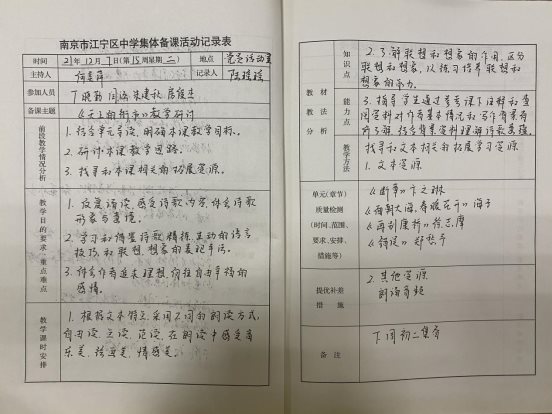 南京市江宁区中学集体备课活动记录表
时间 21年12月7日(第15周星期二) 地点 党员活动室
主持人 记录人
参加人员
备课主题 《天上的街市》教学研讨
前段教学情况分析
1. 结合单元导读,明确本课教学目标。
2. 研讨本课教学思路。
3. 找寻和本课相关的拓展资源。
教学目的要求、重点难点
1. 反复诵读,感受诗歌内容,体会诗歌
形象与意境。
2. 学习和借鉴诗歌精炼、生动的语言
技巧和联想、想象的表现手法。
3. 体会作者追求理想,向往自由幸福的
感情。
教学课时安排
1. 根据文本特点,采用不同的朗读方式,
自由读、立读、范读,在朗读中感受音
乐美、绘画美、情感美。
教材教法分析
知识点
2. 了解联想和想象的作用,区分
联想和想象,以练习培养联想和
想象的能力。
能力点
3. 指导学生通过查看课下注释和查阅
资料对作者基本情况和写作背景有
所了解,结合背景资料理解诗歌意蕴。
教学方法
找寻和文本相关的拓展学习资源
1. 文本资源
单元(章节)质量检测(时间、范围、要求、安排、措施等)
《断章》卞之琳
《面朝大海,春暖花开》海子
《再别康桥》徐志摩
《错误》郑愁予
提优补差措施
2. 其他资源
朗诵音频
备注
下周初二集备